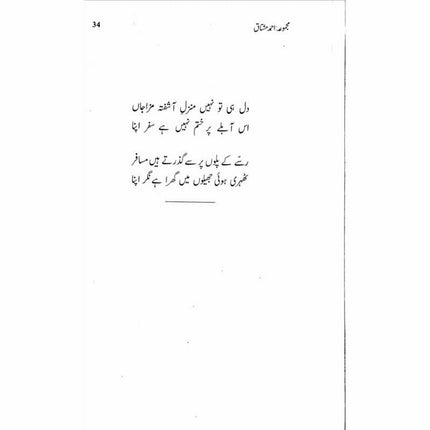 مجموعہ: احمد مشتاق
34
دل ہی تو نہیں منزلِ آشفتہ مزاجاں
اس آبلے پر ختم نہیں ہے سفر اپنا
رسّے کے پلوں پر سے گذرتے ہیں مسافر
ٹھہری ہوئی جھیلوں میں گھرا ہے نگر اپنا